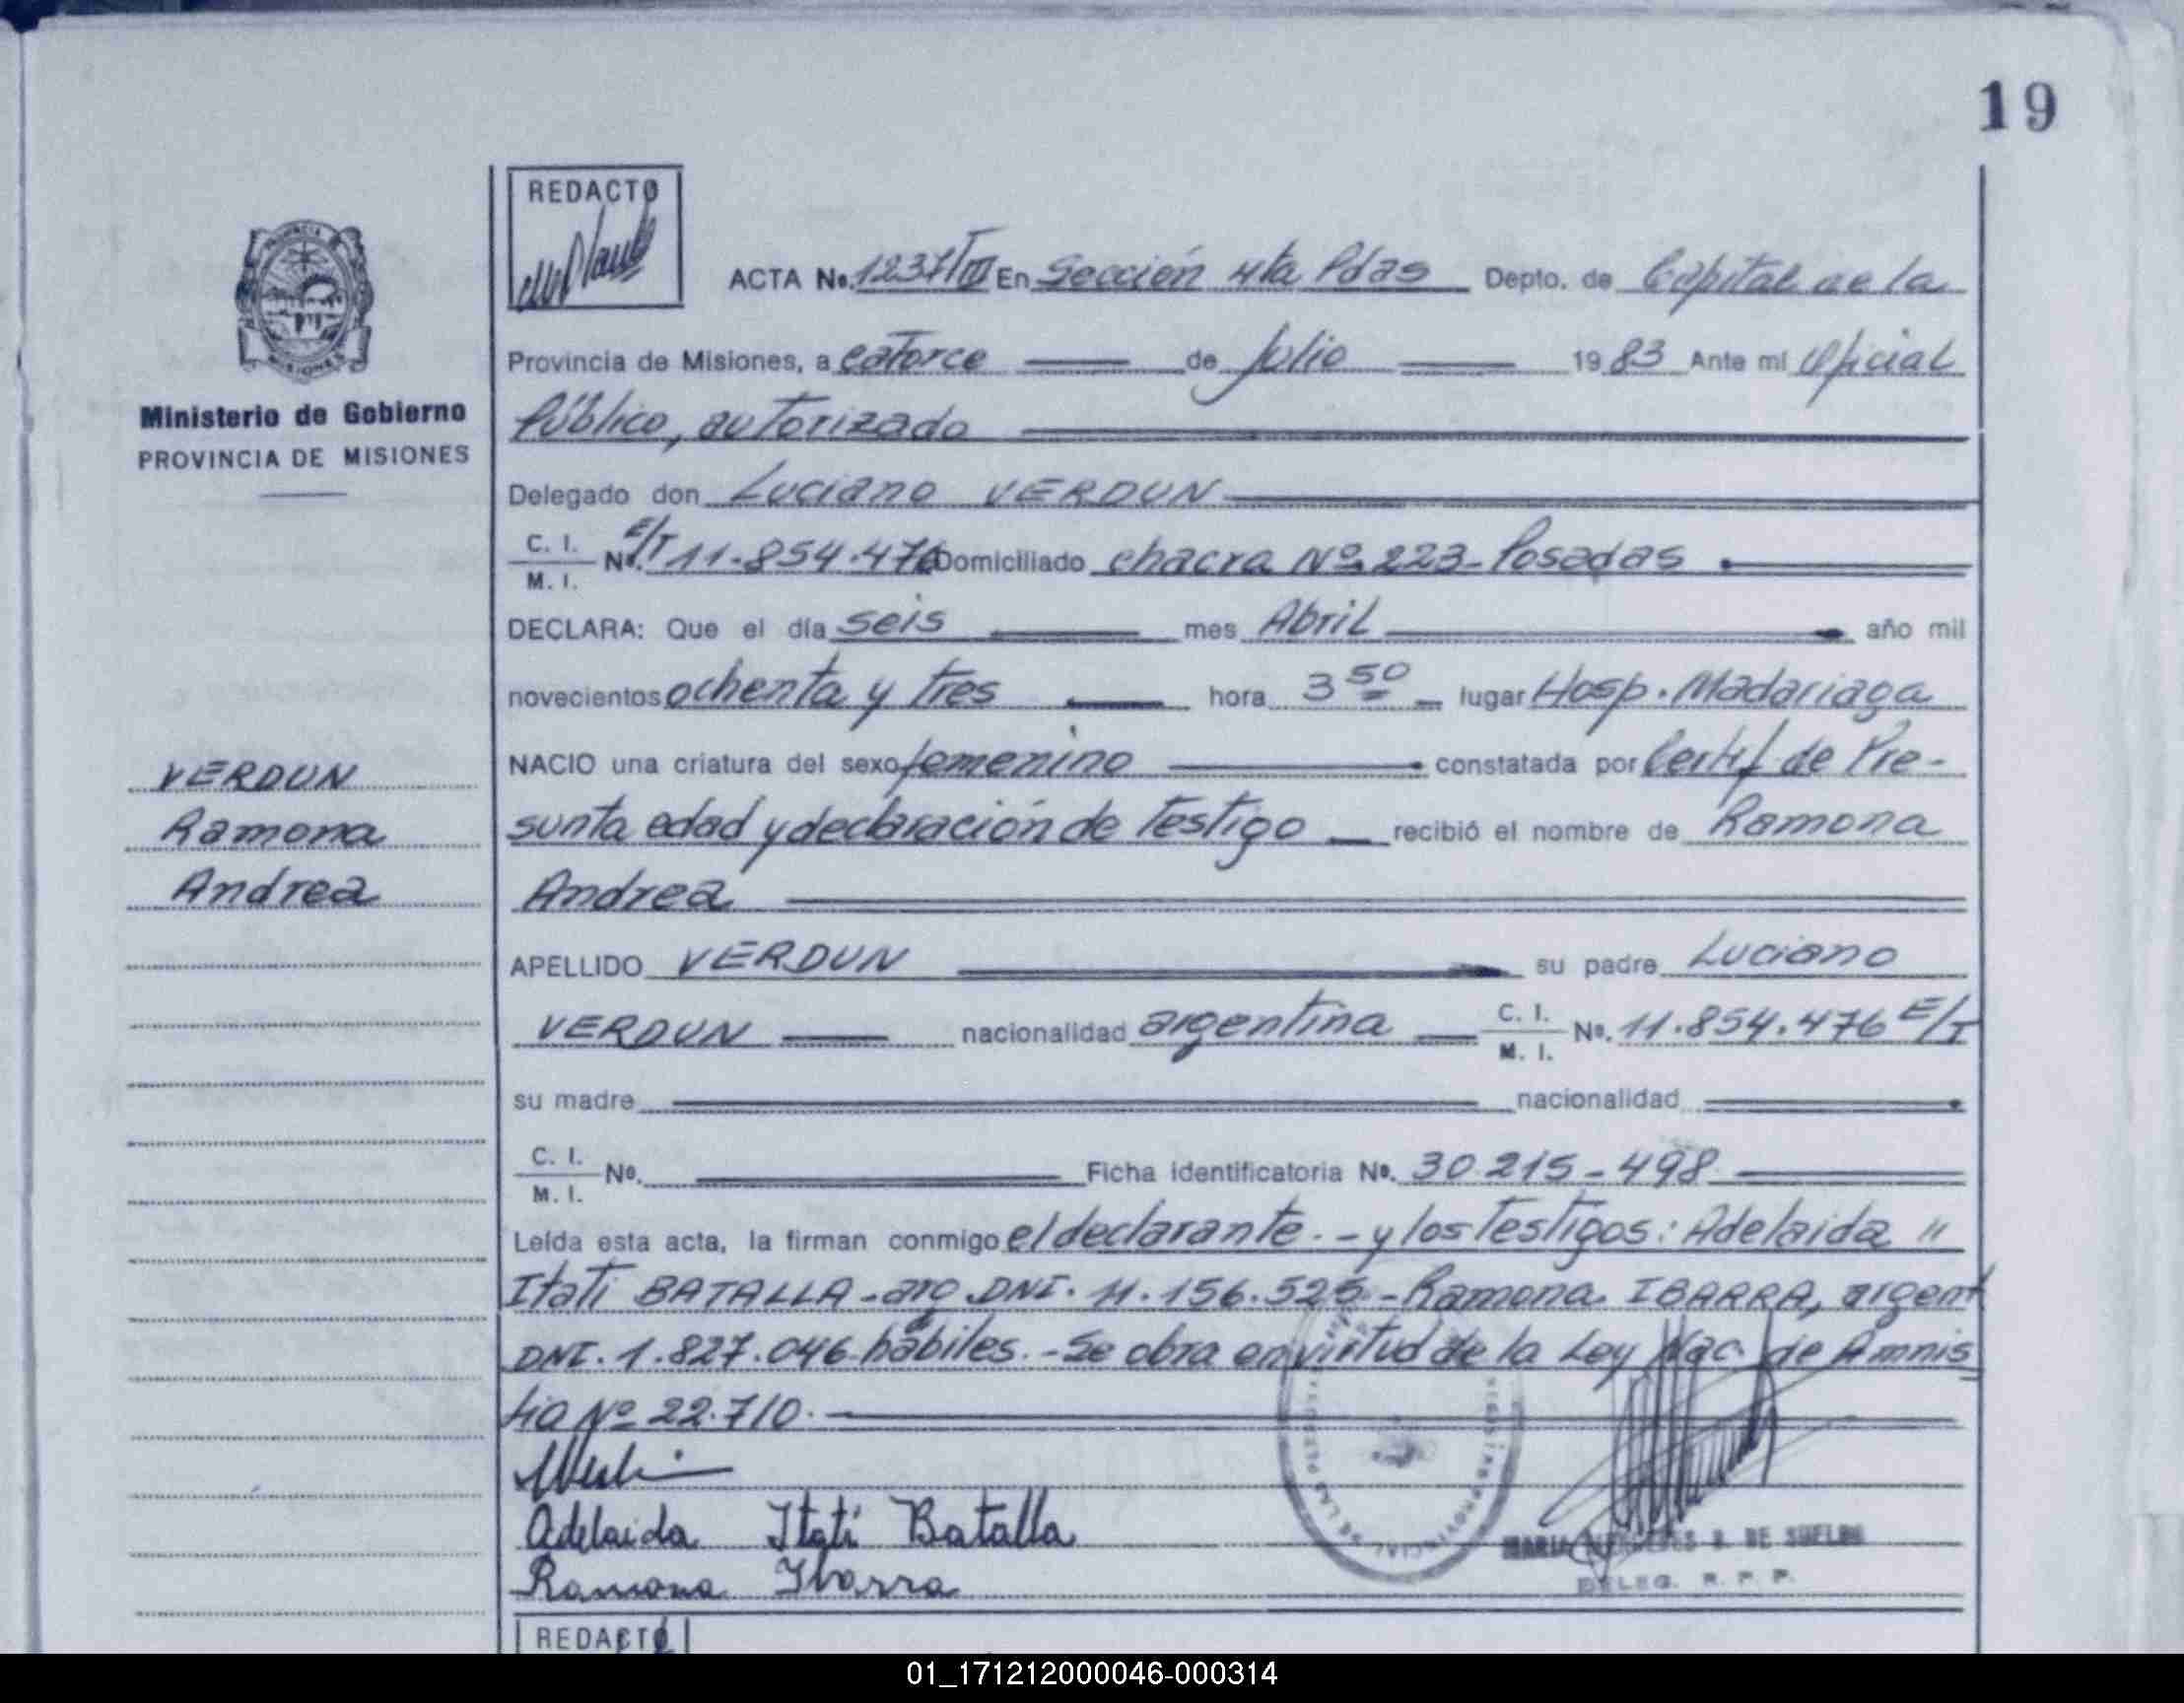 19
REDACTO
ACTA No. 1237/III En Sección 4ta Pdas Depto. de Capital de la
Provincia de Misiones, a catorce de Julio 1983 Ante mí Oficial
Público, autorizado
Ministerio de Gobierno
PROVINCIA DE MISIONES
Delegado don Luciano VERDUN
C. I. M. I. No. E/T 11.854.476 Domiciliado chacra Nº 223 - Posadas
DECLARA: Que el día seis mes Abril año mil
novecientos ochenta y tres hora 3 50 lugar Hosp. Madariaga
NACIO una criatura del sexo femenino constatada por Certif de Pre-
VERDUN
Ramona
Andrea
sunta edad y declaración de testigo recibió el nombre de Ramona
Andrea
APELLIDO VERDUN su padre Luciano
VERDUN nacionalidad argentina C. I. M. I. No. 11.854.476 E/T
su madre nacionalidad
C. I. M. I. No. Ficha identificatoria No. 30.215-498
Leída esta acta, la firman conmigo el declarante.- y los testigos: Adelaida "
Itati BATALLA - arg. DNI. 11.156.525 - Ramona IBARRA, argent
DNI. 1.827.046 hábiles.- Se obra en virtud de la Ley Nac. de Amnis
tia Nº 22.710.
Adelaida Itati Batalla
Ramona Ibarra
DE SUELDO
DELEG. R. P. P.
REDACTO
01_171212000046-000314